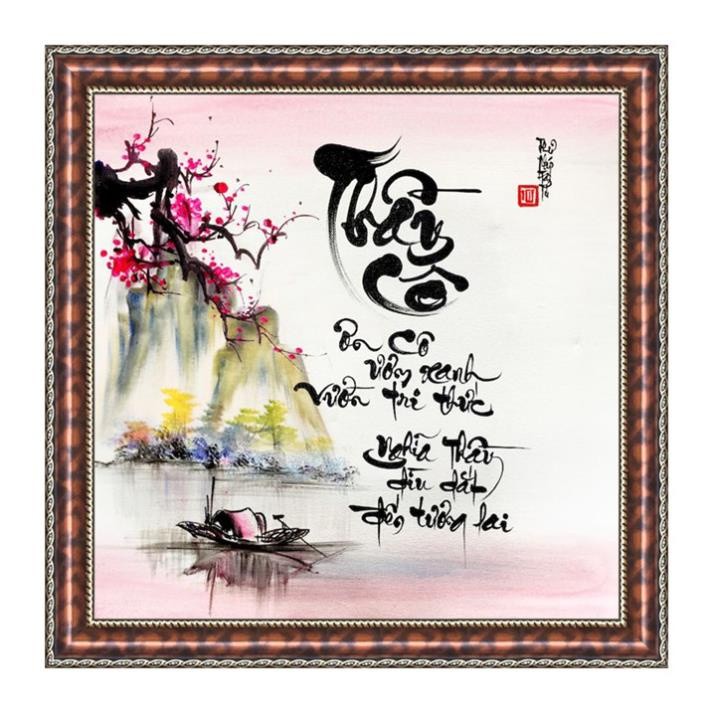 Thầy
Cô
Ơn Cô
ươm xanh
vườn tri thức
Nghĩa Thầy
dìu dắt
đến tương lai